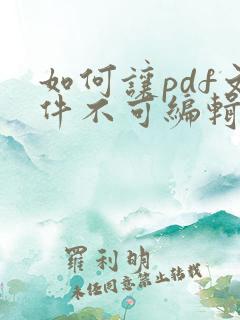 如何讓pdf文
件不可編輯
羅利明
未经同意禁止转载